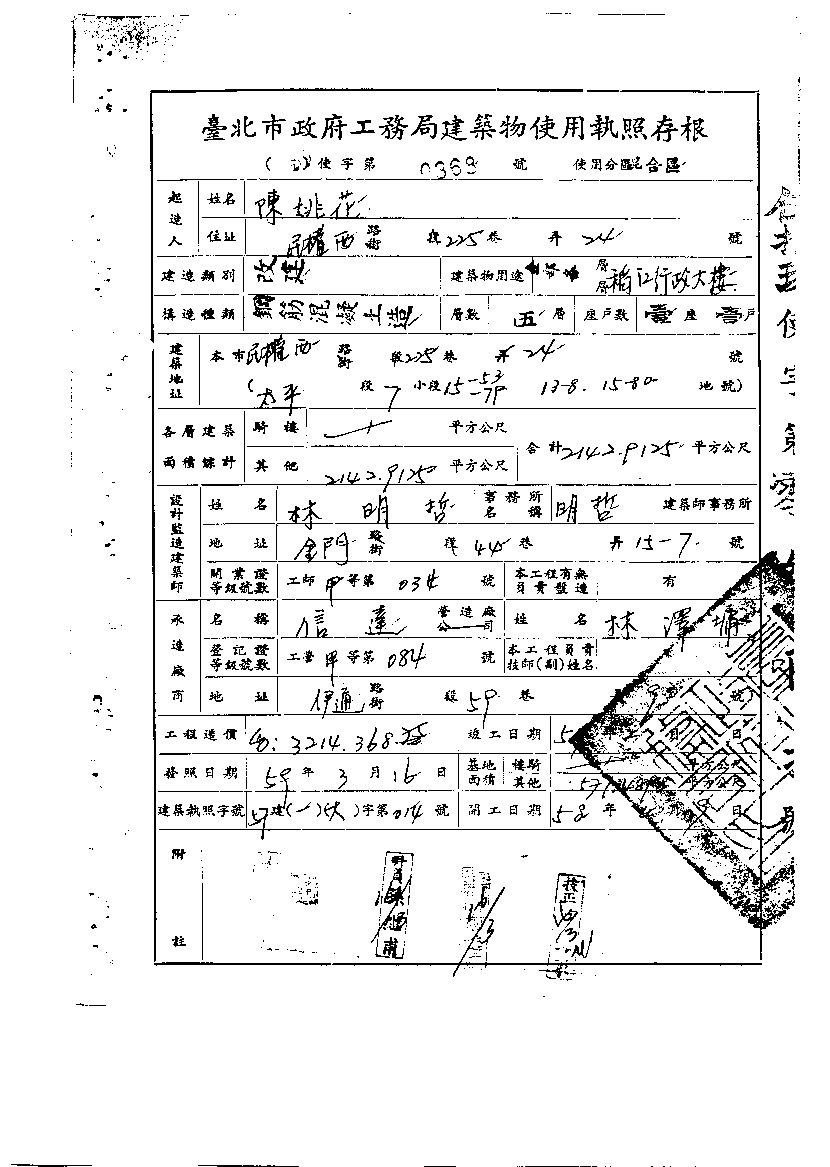 臺北市政府工務局建築物使用執照存根
使字第 0369 號 使用分區 混合區
起造人 姓名 陳桃花
住址 民權西 路街 段 225 巷 弄 24 號
建造類別 改建 建築物用途 層層 稻江行政大樓
構造種類 鋼筋混凝土造 層數 五 層 座戶數 壹 座 壹 戶
建築地址 本市 民權西 路街 段 225 巷 弄 24 號
(太平 段 7 小段 15-53 -79 13-8. 15-80 地號)
各層建築面積總計 騎樓 平方公尺 合計 2142.9125 平方公尺
其他 2142.9125 平方公尺
設計監造建築師 姓名 林明哲 事務所名稱 明哲 建築師事務所
地址 金門 路街 段 44 巷 弄 15-7 號
開業證等級號數 工師 甲 等第 034 號 本工程有無負責監造 有
承造廠商 名稱 信達 營造廠公司 姓名 林澤埔
登記證等級號數 工營 甲 等第 084 號 本工程負責技師(副)姓名
地址 伊通 路街 段 59 巷 號
工程造價 3214.368 竣工日期 年 月 日
發照日期 59 年 3 月 16 日 基地面積 騎樓 平方公尺
其他 平方公尺
建築執照字號 57 建(一)(大)字第 014 號 開工日期 58 年 日
附註
科員
技正